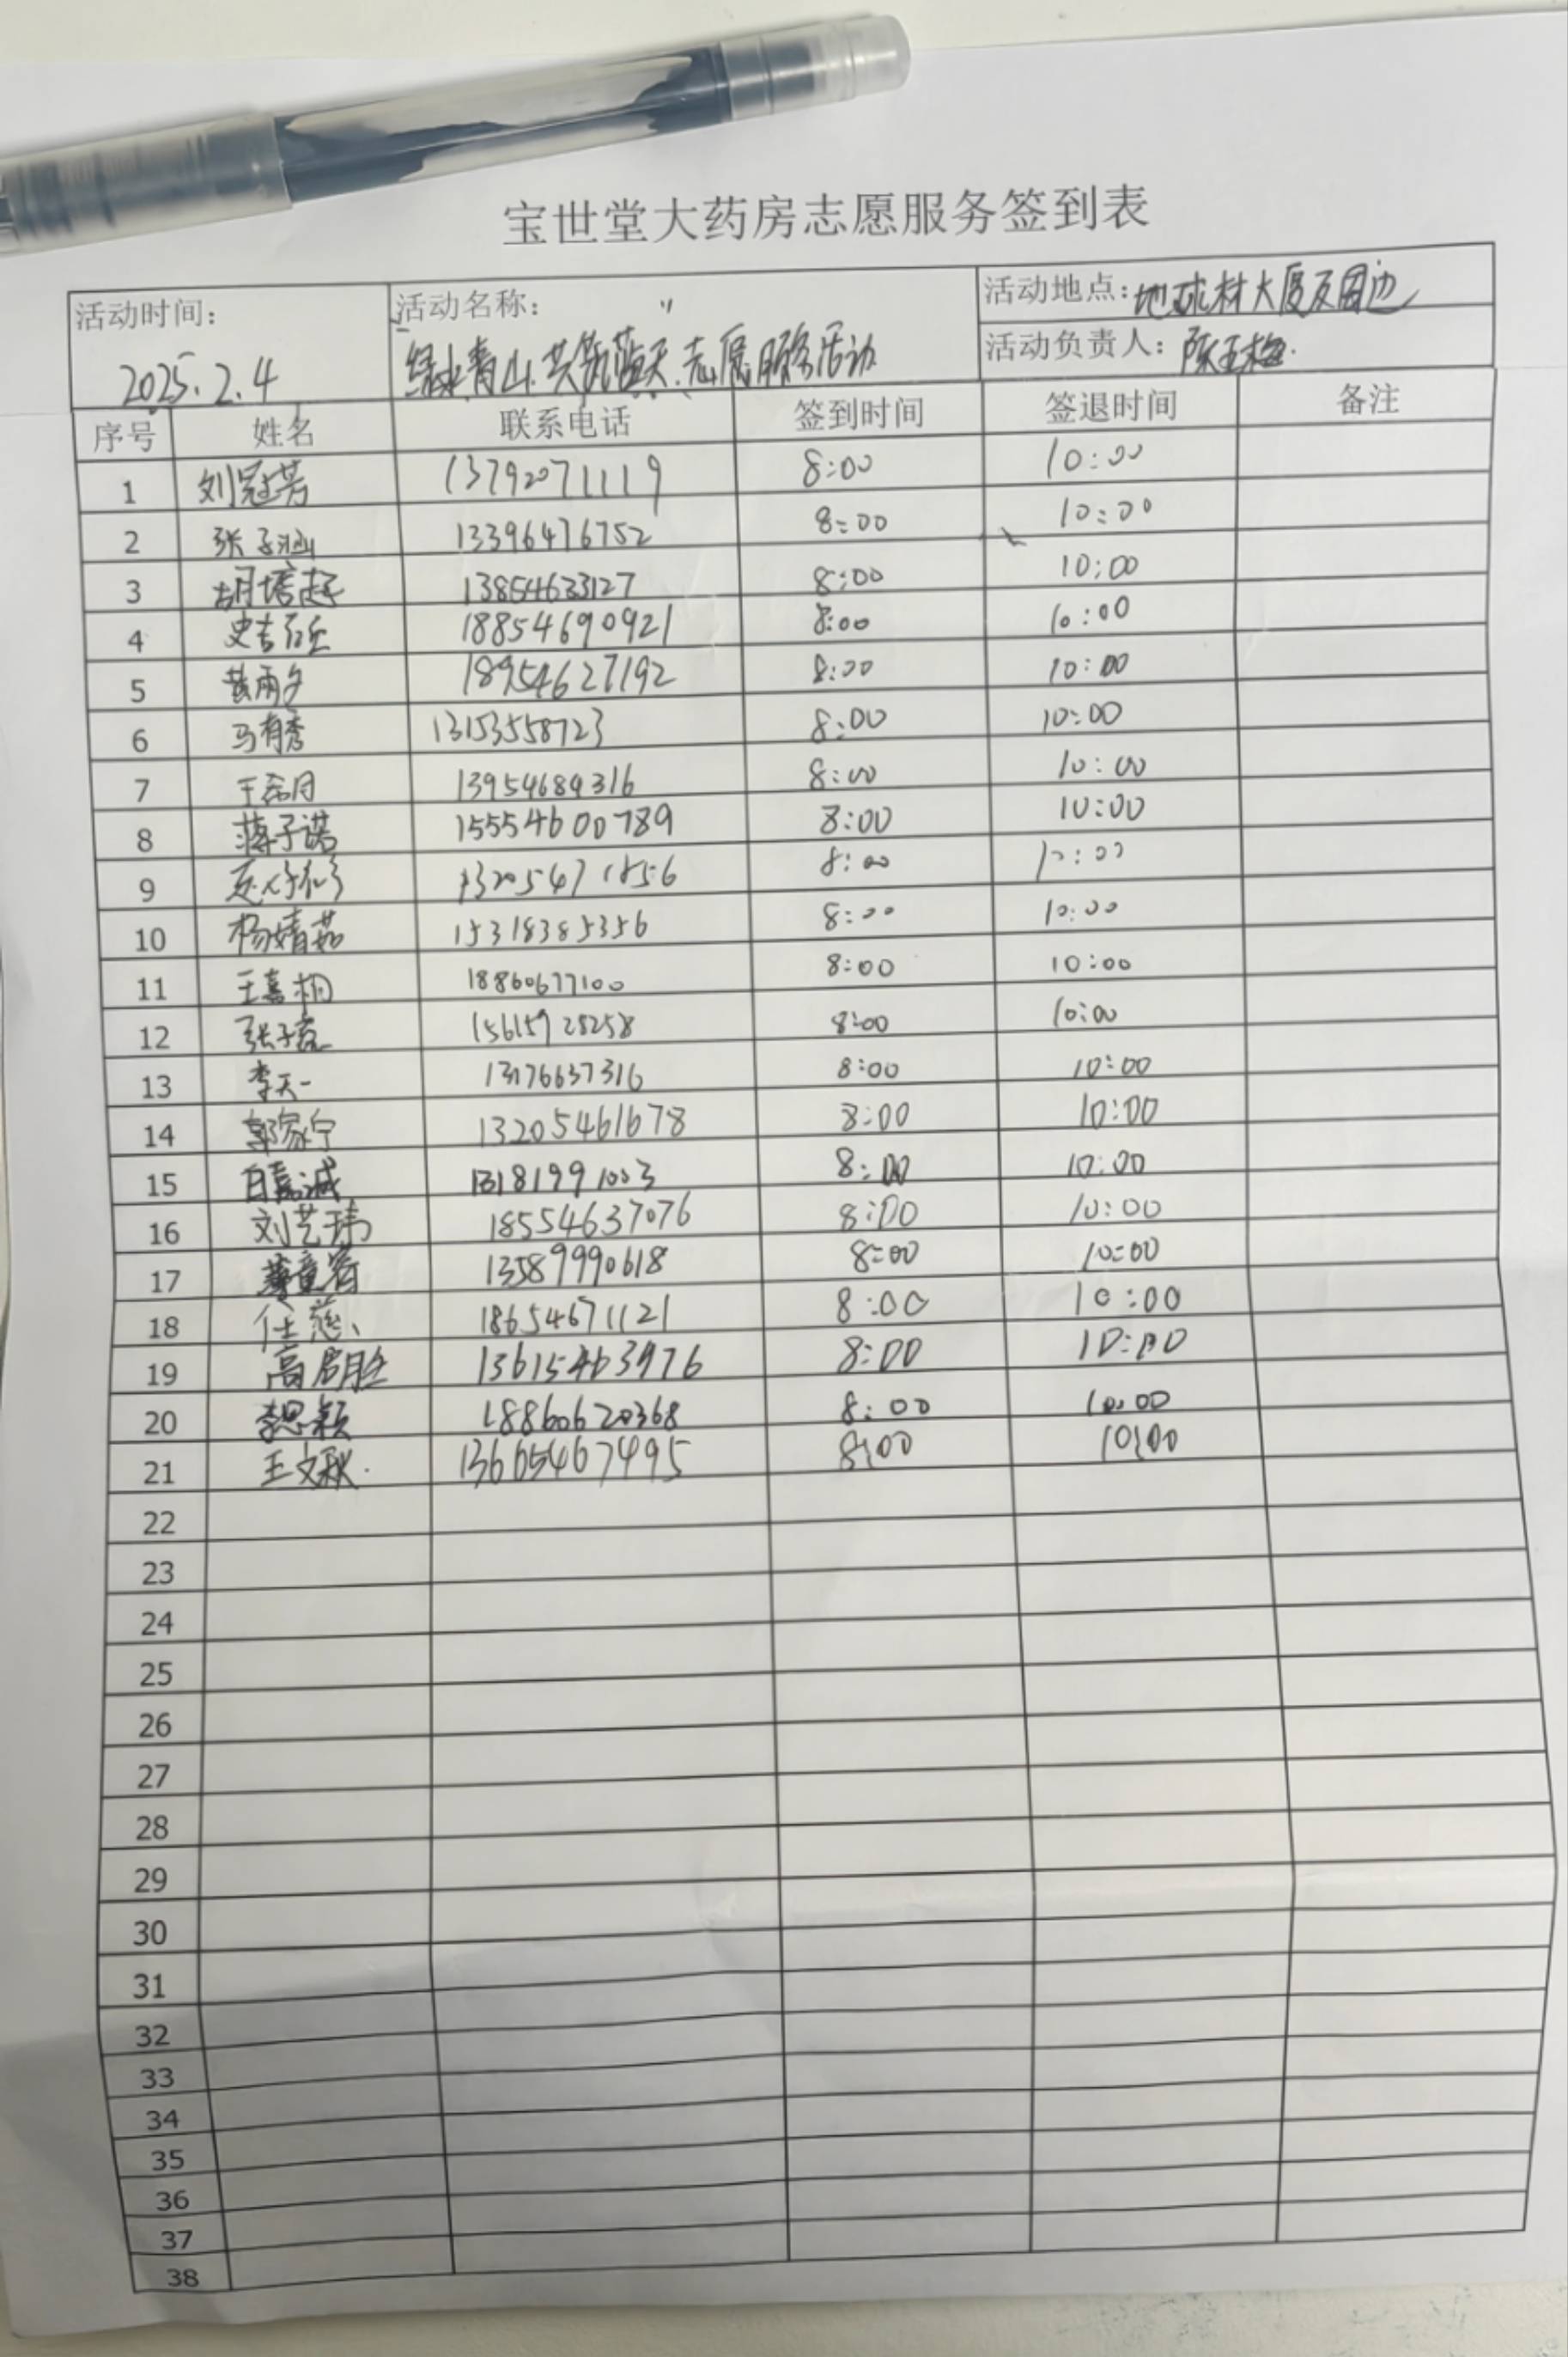 宝世堂大药房志愿服务签到表
活动时间: 2025.2.4
活动名称: "绿水青山.共筑蓝天"志愿服务活动
活动地点: 地球村大厦及周边
活动负责人: 陈玉梅
序号 姓名 联系电话 签到时间 签退时间 备注
1 刘冠芳 13792071119 8:00 10:00
2 张子涵 13396476752 8:00 10:00
3 13854633127 8:00 10:00
4 18854690921 8:00 10:00
5 黄雨夕 18954627192 8:00 10:00
6 马有秀 13153558723 8:00 10:00
7 王磊月 13954684316 8:00 10:00
8 蒋子诺 15554600789 8:00 10:00
9 8:00 10:00
10 杨婧茹 15318385356 8:00 10:00
11 王嘉桐 18860677100 8:00 10:00
12 15615928258 8:00 10:00
13 李天一 13176637316 8:00 10:00
14 郭家宁 13205461678 8:00 10:00
15 白嘉诚 13181991003 8:00 10:00
16 刘艺玮 18554637076 8:00 10:00
17 13589990618 8:00 10:00
18 任慈 18654671121 8:00 10:00
19 高启胜 13615463976 8:00 10:00
20 李思颖 18860620368 8:00 10:00
21 王文秋. 13665467495 8:00 10:00
22
23
24
25
26
27
28
29
30
31
32
33
34
35
36
37
38